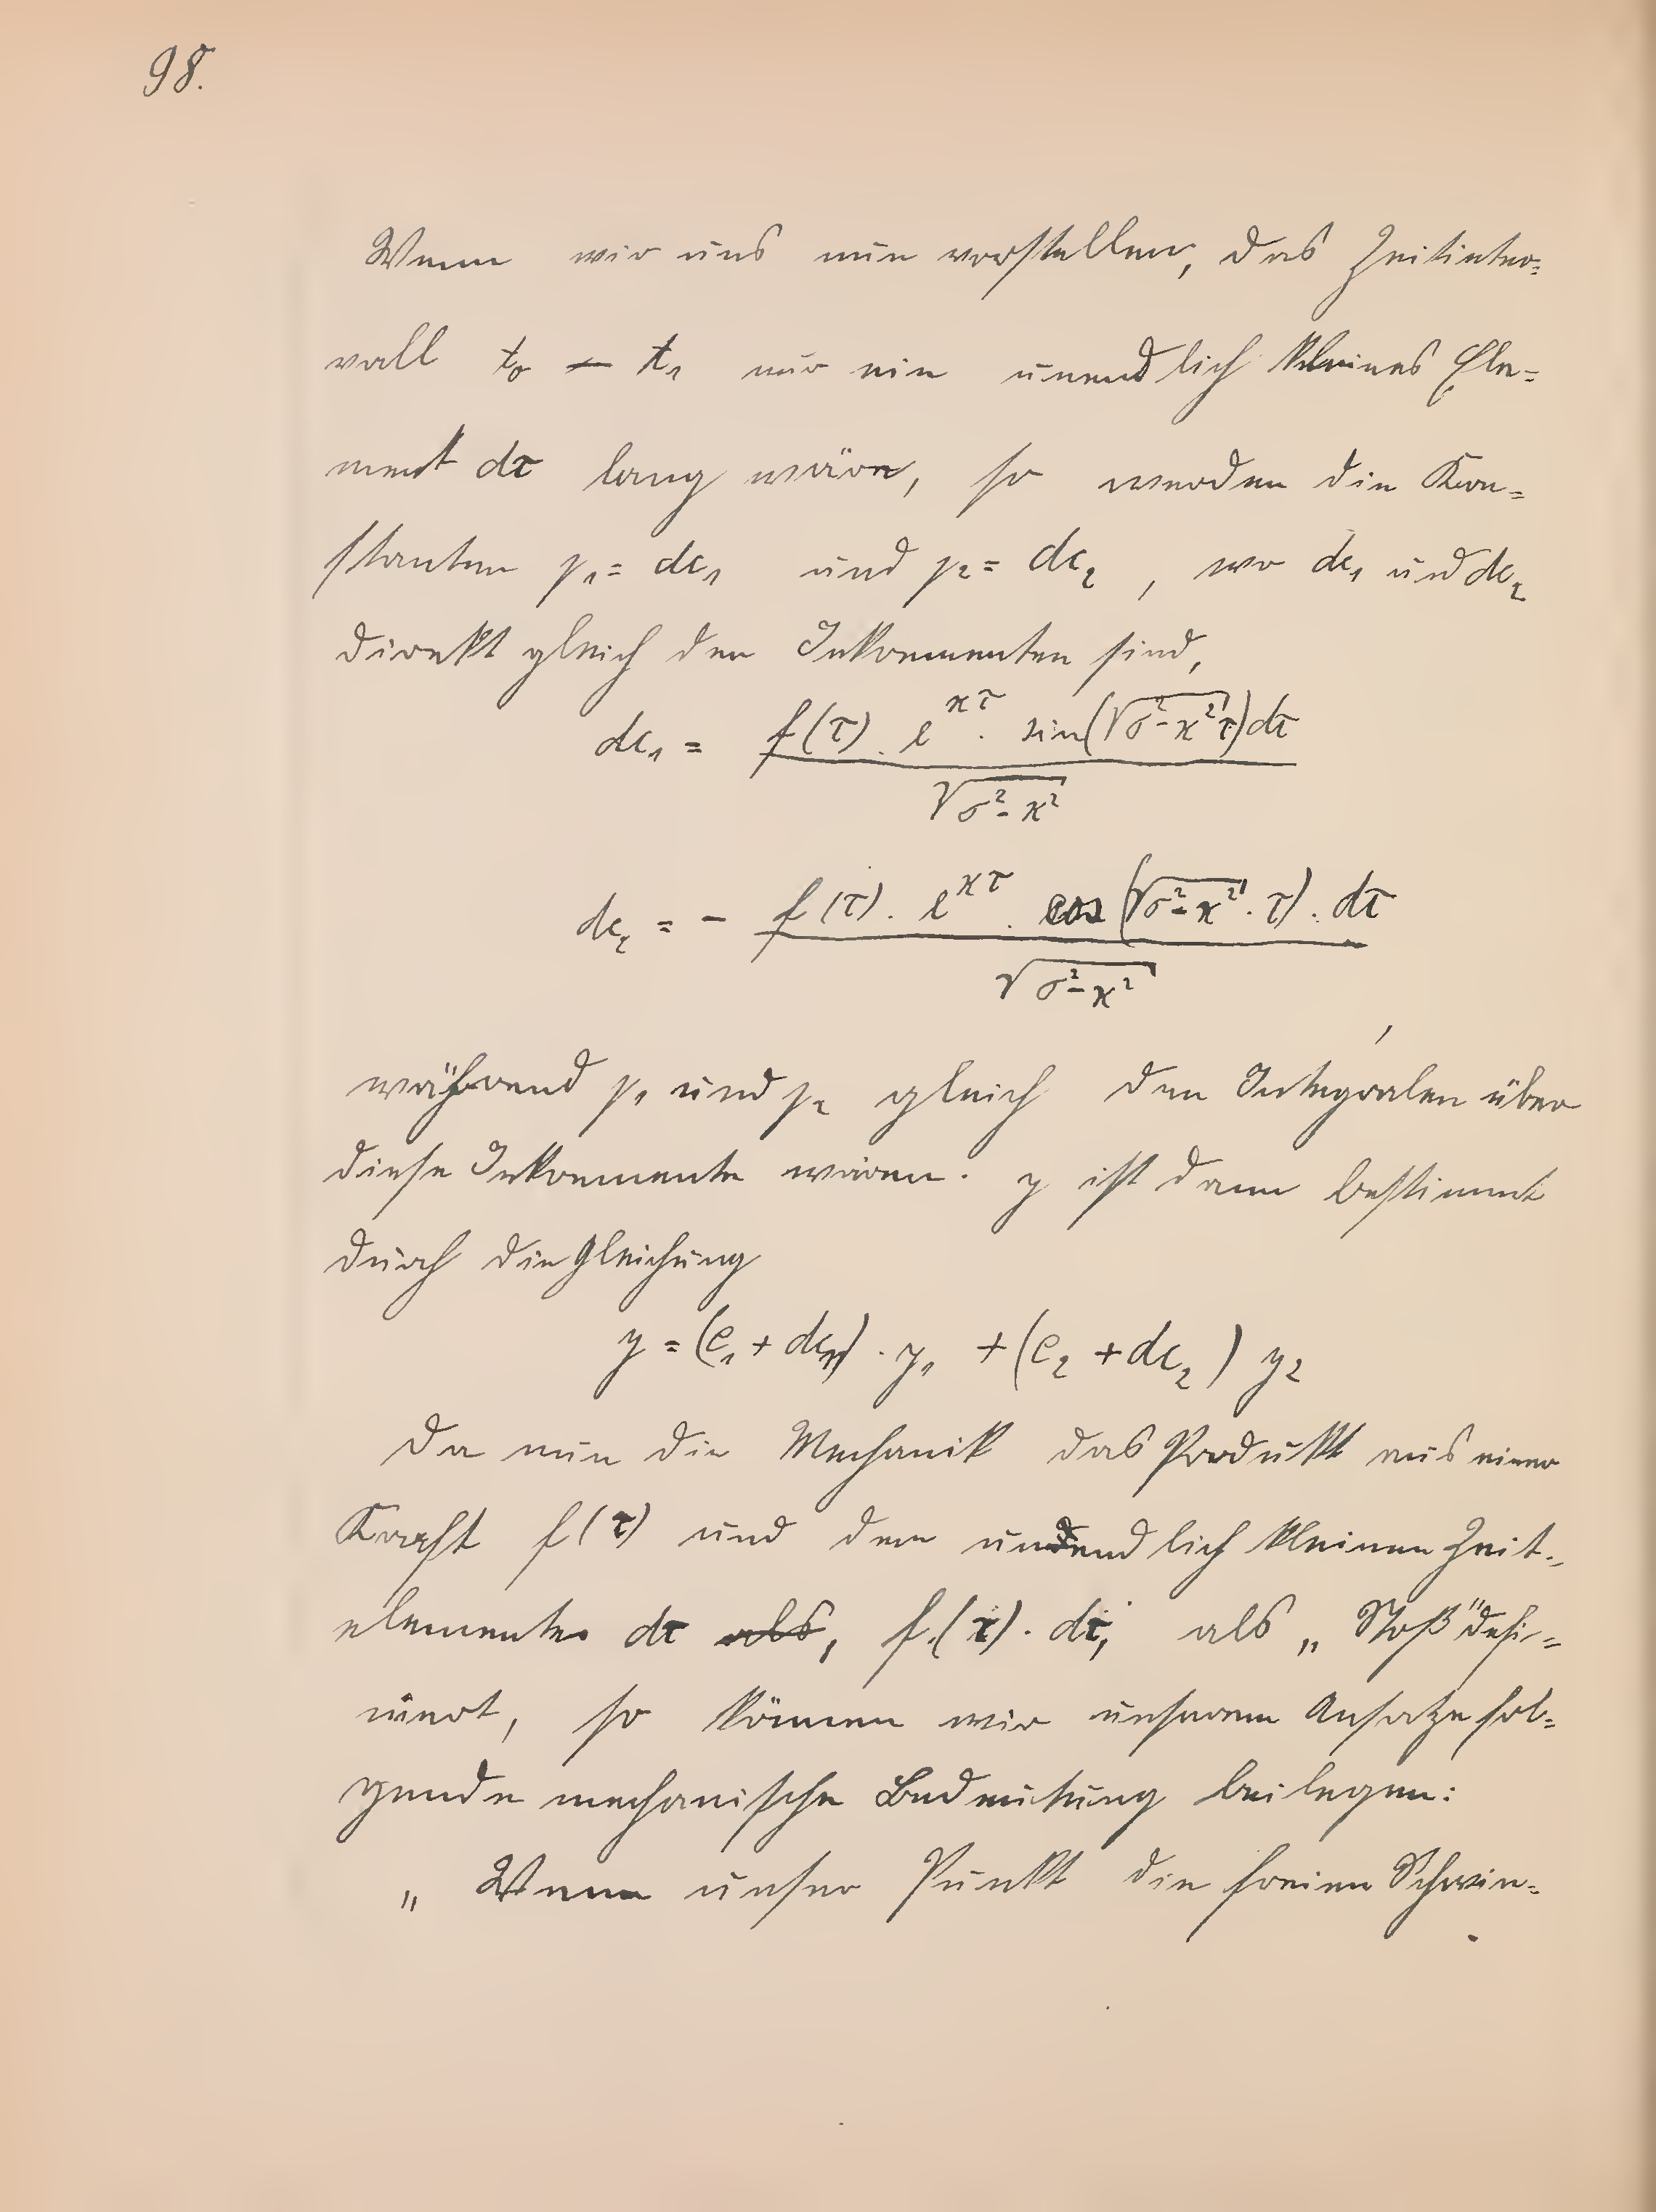 98.
Wenn wir uns nun vorstellen, das Zeitinter=
vall t₀ — t₁ nur ein unendlich kleines Ele=
ment dτ lang wäre, so werden die Kon=
stanten γ₁ = dc₁ und γ₂ = dc₂ , wo dc₁ und dc₂
direkt gleich den Inkrementen sind,
dc₁ = f(τ) . e^{ϰτ} . sin(√(σ²-ϰ²) τ) dτ / √(σ²-ϰ²)
dc₂ = - f(τ) . e^{ϰτ} . cos(√(σ²-ϰ²) . τ) . dτ / √(σ²-ϰ²) ,
während γ₁ und γ₂ gleich den Integralen über
diese Inkremente wären. y ist dann bestimmt
durch die Gleichung
y = (c₁ + dc₁) . y₁ + (c₂ + dc₂) y₂
Da nun die Mechanik das Produkt aus einer
Kraft f(τ) und dem unendlich kleinen Zeit=
elemente dτ als, f(τ) . dτ, als „Stoß" defi=
niert, so können wir unserem Ansatze fol=
gende mechanische Bedeutung beilegen:
„Wenn unser Punkt die freien Schwin=